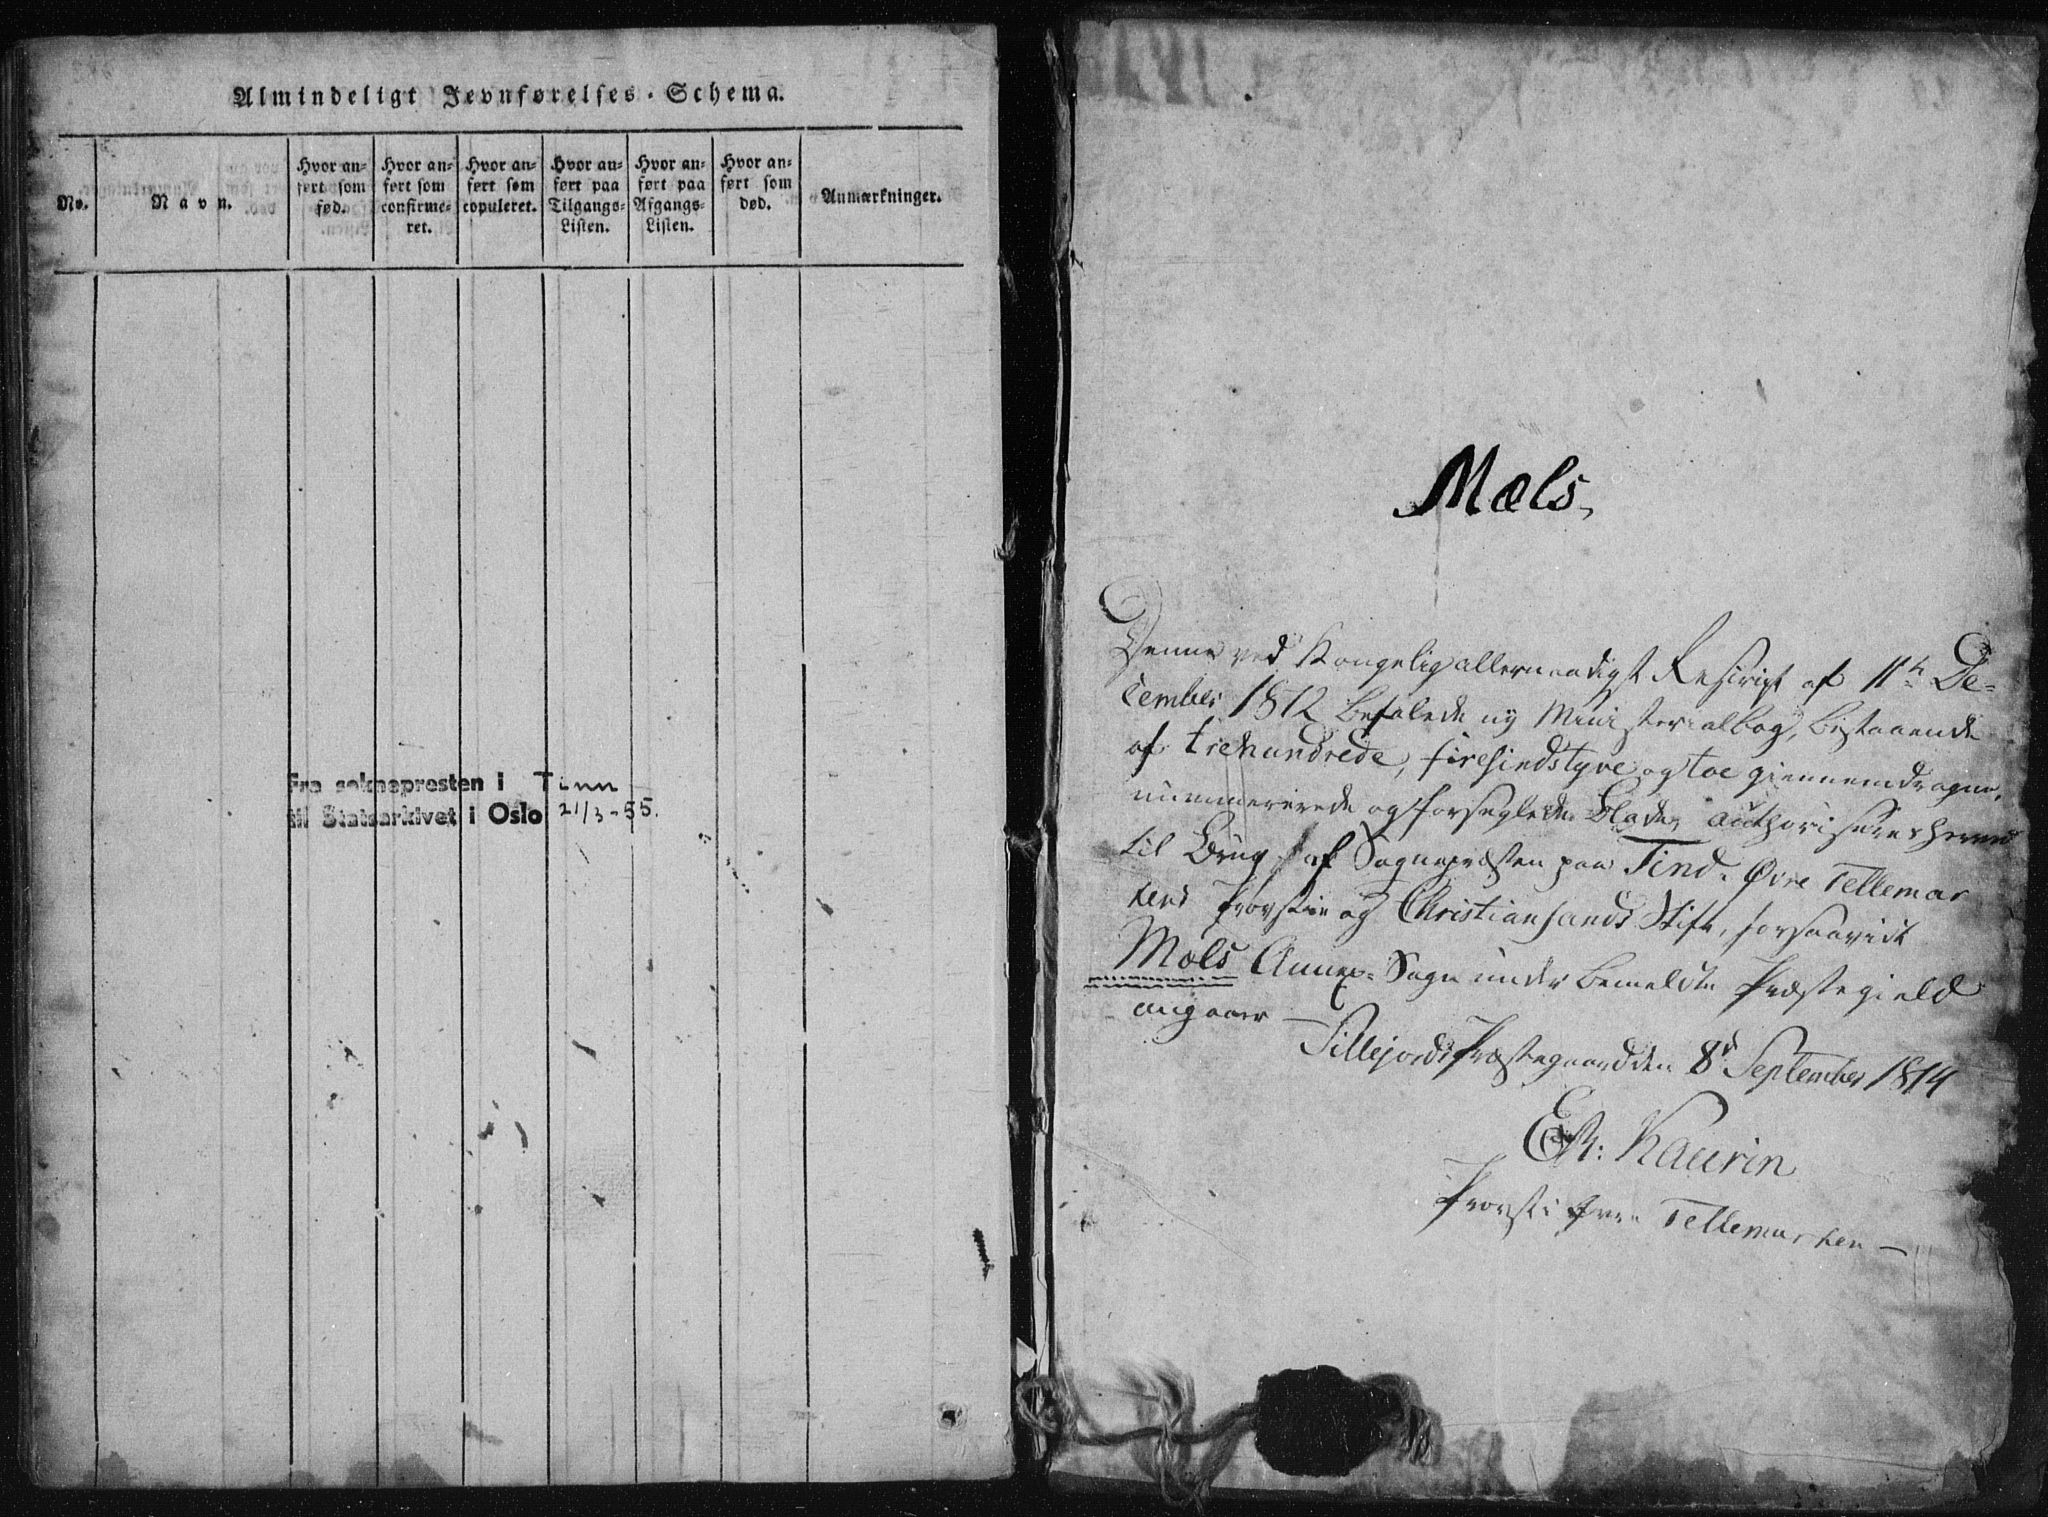 Almindeligt Jevnførelses-Schema.
No.
Navn.
Hvor an-
ført som
fød.
Hvor an-
ført som
confirme-
ret.
Hvor an-
ført som
copuleret.
Hvor an-
ført paa
Tilgangs-
Listen.
Hvor an-
ført paa
Afgangs-
Listen.
Hvor an-
ført som
død.
Anmærkninger.
Fra sokneprosten i Tinn
til Statsarkivet i Oslo 21/3-55.
Mæls,
Denne ved Kongelig allernaadigst Rescript af 11te De-
cember 1812 befalede ny Ministerialbog, bestaaende
af trehundrede, firesindstyve og toe giennemdragne,
nummererede og forseglede Blade, authoriseres herved
til Brug af Sognepræsten paa Tind, Øvre Tellemar
kens Provstie og Christiansands Stift, forsaavidt
Mæls Annex-Sogn under bemeldte Præstegield
angaaer —
Sillejords Præstegaard den 8d September 1814
Kaurin
Provst i Øvre Tellemarken —